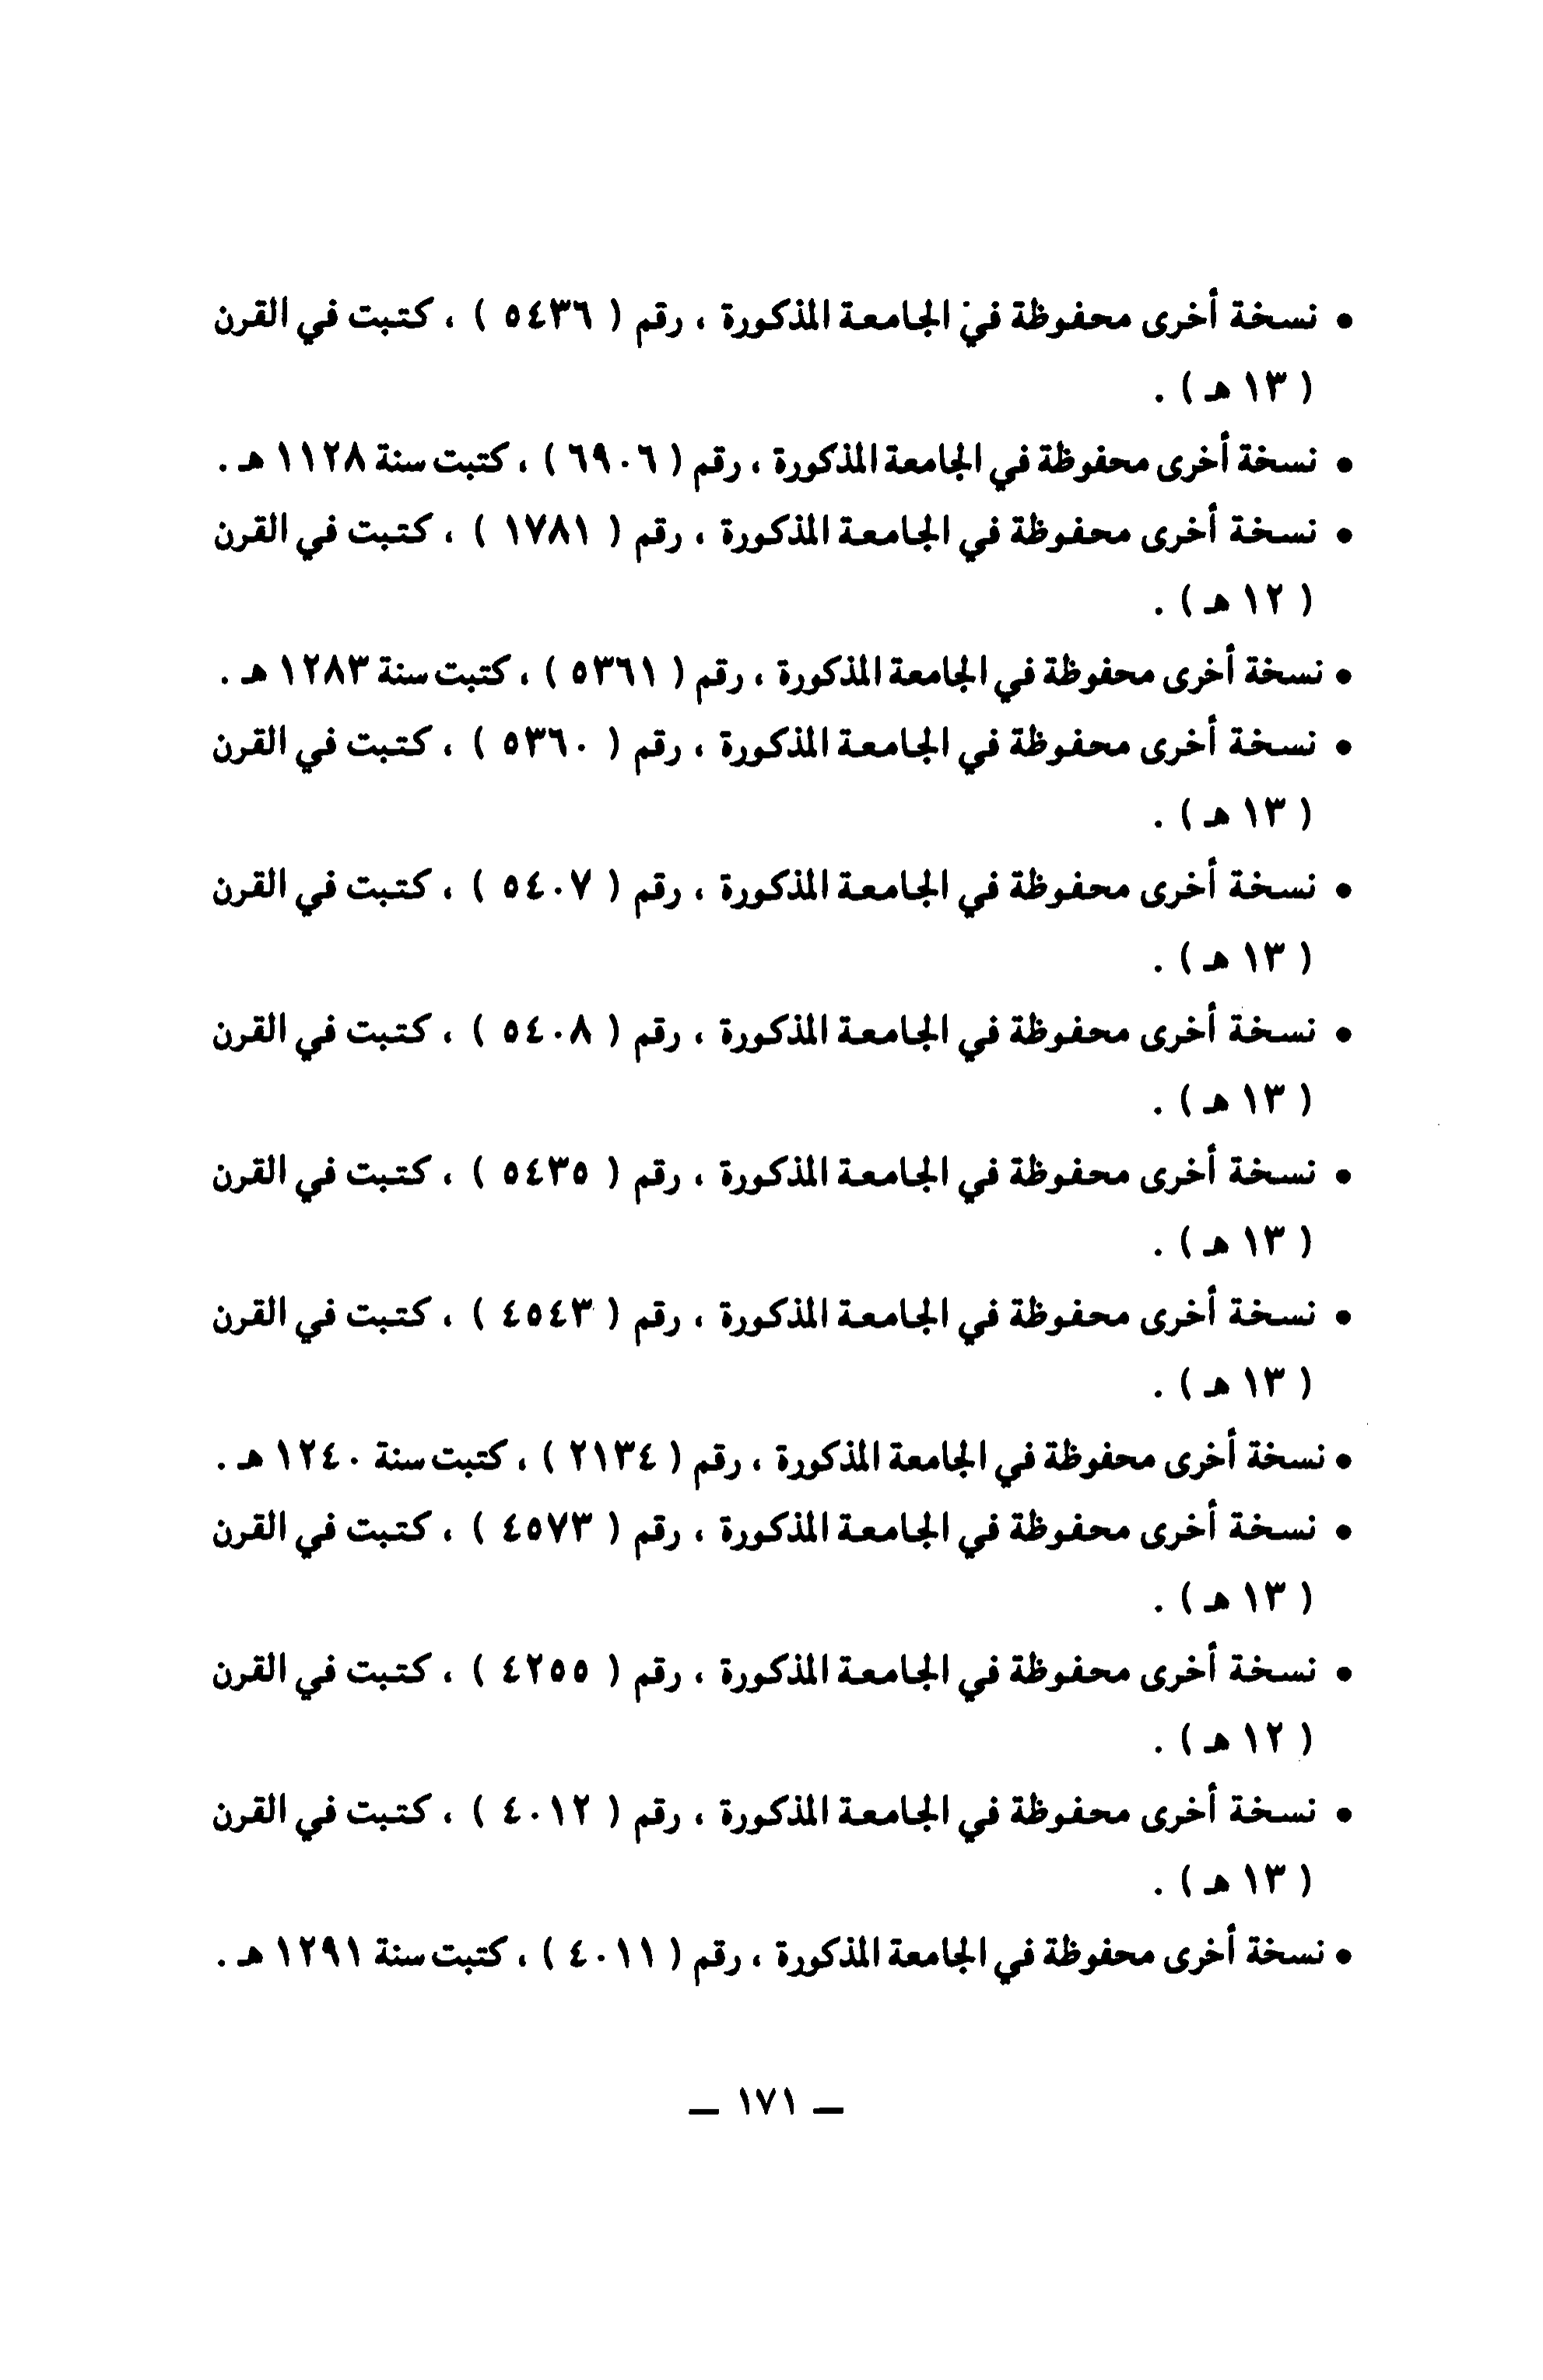 • نسخة أخرى محفوظة في الجامعة المذكورة ، رقم ( ٥٤٣٦ ) ، كتبت في القرن
( ١٣ هـ ) .
• نسخة أخرى محفوظة في الجامعة المذكورة ، رقم ( ٦٩٠٦ ) ، كتبت سنة ١١٢٨ هـ .
• نسخة أخرى محفوظة في الجامعة المذكورة ، رقم ( ١٧٨١ ) ، كتبت في القرن
( ١٢ هـ ) .
• نسخة أخرى محفوظة في الجامعة المذكورة ، رقم ( ٥٣٦١ ) ، كتبت سنة ١٢٨٣ هـ .
• نسخة أخرى محفوظة في الجامعة المذكورة ، رقم ( ٥٣٦٠ ) ، كتبت في القرن
( ١٣ هـ ) .
• نسخة أخرى محفوظة في الجامعة المذكورة ، رقم ( ٥٤٠٧ ) ، كتبت في القرن
( ١٣ هـ ) .
• نسخة أخرى محفوظة في الجامعة المذكورة ، رقم ( ٥٤٠٨ ) ، كتبت في القرن
( ١٣ هـ ) .
• نسخة أخرى محفوظة في الجامعة المذكورة ، رقم ( ٥٤٣٥ ) ، كتبت في القرن
( ١٣ هـ ) .
• نسخة أخرى محفوظة في الجامعة المذكورة ، رقم ( ٤٥٤٣ ) ، كتبت في القرن
( ١٣ هـ ) .
• نسخة أخرى محفوظة في الجامعة المذكورة ، رقم ( ٢١٣٤ ) ، كتبت سنة ١٢٤٠ هـ .
• نسخة أخرى محفوظة في الجامعة المذكورة ، رقم ( ٤٥٧٣ ) ، كتبت في القرن
( ١٣ هـ ) .
• نسخة أخرى محفوظة في الجامعة المذكورة ، رقم ( ٤٢٥٥ ) ، كتبت في القرن
( ١٢ هـ ) .
• نسخة أخرى محفوظة في الجامعة المذكورة ، رقم ( ٤٠١٢ ) ، كتبت في القرن
( ١٣ هـ ) .
• نسخة أخرى محفوظة في الجامعة المذكورة ، رقم ( ٤٠١١ ) ، كتبت سنة ١٢٩١ هـ .
— ١٧١ —